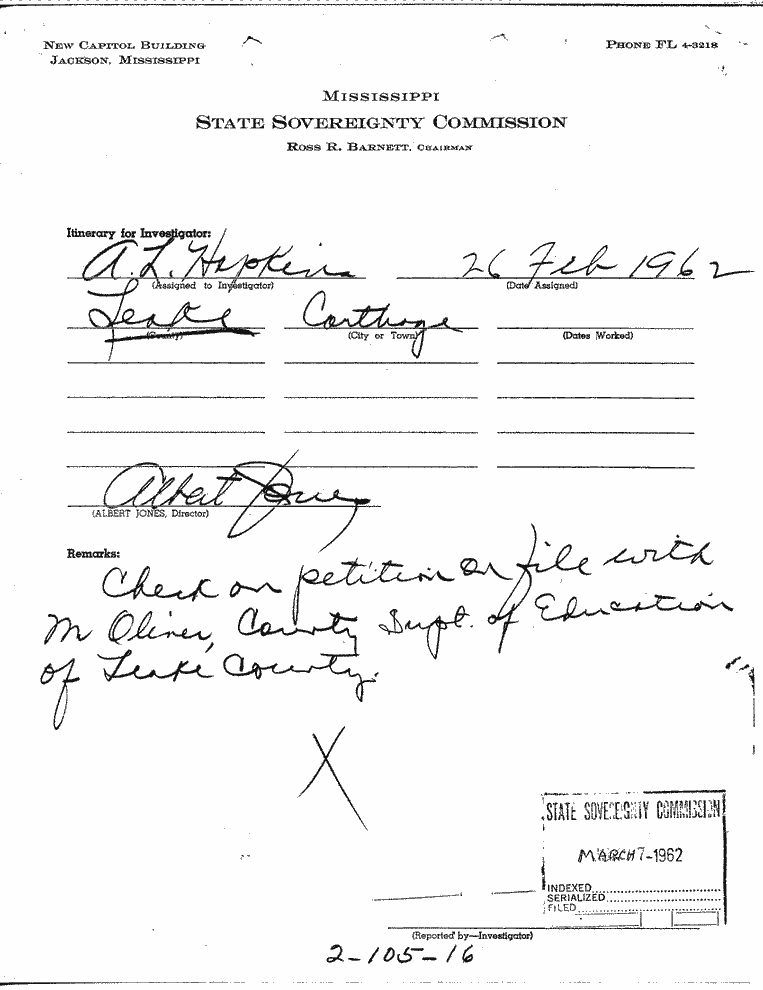 NEW CAPITOL BUILDING
JACKSON, MISSISSIPPI
PHONE FL 4-3218
MISSISSIPPI
STATE SOVEREIGNTY COMMISSION
ROSS R. BARNETT, CHAIRMAN
Itinerary for Investigator:
A.L. Hopkins 26 Feb 1962
(Assigned to Investigator) (Date Assigned)
Leake Carthage
(County) (City or Town) (Dates Worked)
Albert Jones
(ALBERT JONES, Director)
Remarks:
Check on petition on file with
M Oliver, County Supt. of Education
of Leake County.
X
STATE SOVEREIGNTY COMMISSION
MARCH 7-1962
INDEXED
SERIALIZED
FILED
(Reported by—Investigator)
2-105-16